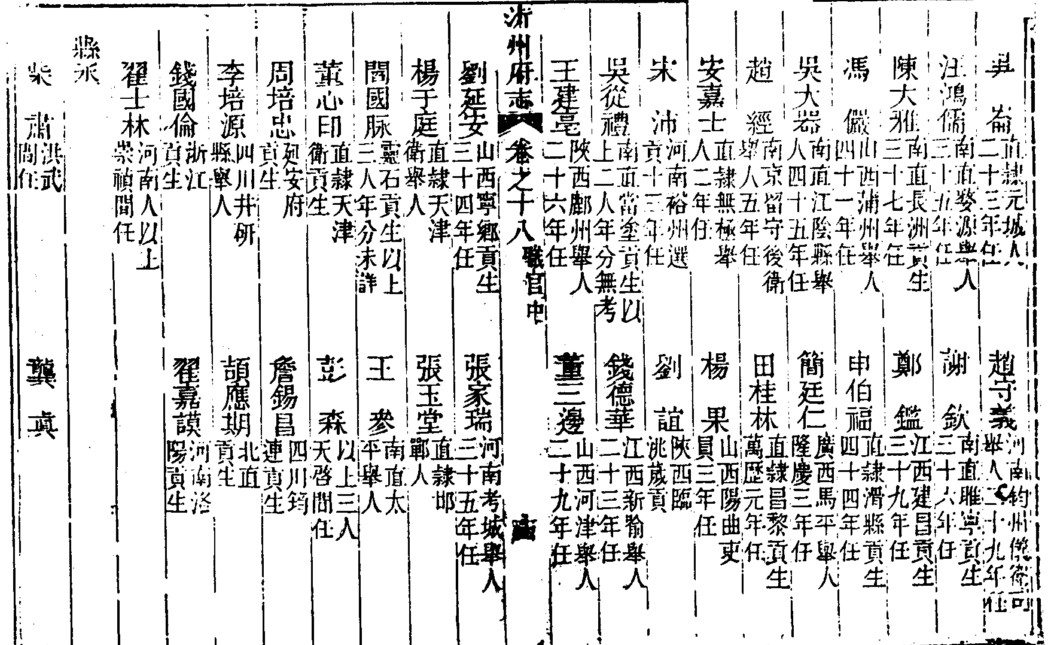 尹崙 直隸元城人二十三年任
趙守義 河南鈞州儀衛司舉人二十九年任
汪鴻儒 南直婺源舉人三十五年任
謝欽 南直睢寧貢生三十六年任
陳大雅 南直長洲貢生三十七年任
鄭鑑 江西建昌貢生三十九年任
馮儼 山西蒲州舉人四十一年任
申伯福 直隸滑縣貢生四十四年任
吳大器 南直江陰縣舉人四十五年任
簡廷仁 廣西馬平舉人隆慶三年任
趙經 南京留守後衛舉人五年任
田桂林 直隸昌黎貢生萬歷元年任
安嘉士 直隸無極舉人二年任
楊果 山西陽曲吏員三年任
宋沛 河南裕州選貢十三年任
劉誼 陝西臨洮歲貢
吳從禮 南直當塗貢生以上二人年分無考
錢德華 江西新喻舉人二十三年任
王建亳 陝西鄜州舉人二十六年任
董三邊 山西河津舉人二十九年任
沂州府志 卷之十八 職官中
劉延安 山西寧鄉貢生三十四年任
張家瑞 河南考城舉人三十五年任
楊于庭 直隸天津衛舉人
張玉堂 直隸邯鄲人
閻國脉 靈石貢生以上三人年分未詳
王參 南直太平舉人
董心印 直隸天津衛貢生
彭森 以上三人天啓間任
周培忠 延安府貢生
詹錫昌 四川筠連貢生
李培源 四川井研縣舉人
頡應期 北直貢生
錢國倫 浙江貢生
翟嘉謨 河南洛陽貢生
翟士林 河南人以上崇禎間任
縣丞
柴肅 洪武間任
龔真